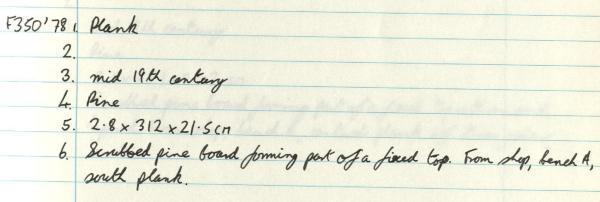 F350'78 1. Plank
2.
3. mid 19th century
4. Pine
5. 2.8 x 312 x 21.5 CM
6. Scrubbed pine board forming part of a fixed top. From shop, bench A,
south plank.